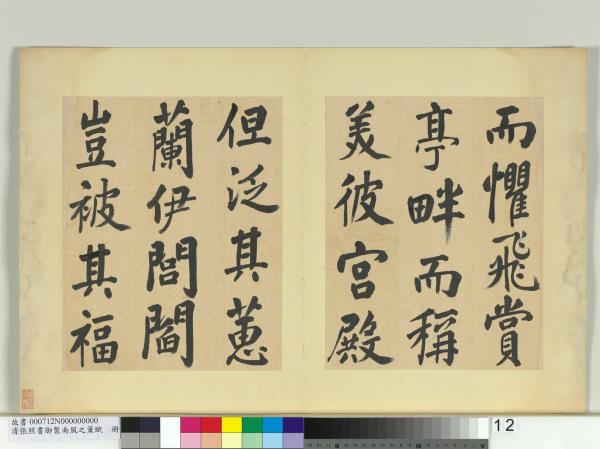 而懼飛賞
亭畔而稱
美彼宮殿
但泛其蕙
蘭伊閭閻
豈被其福
故書 000712N000000000
清張照書御製南風之薰賦 冊
12